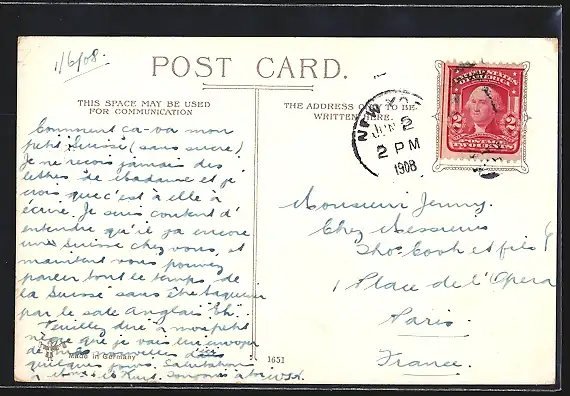 1/6/08.
POST CARD.
THIS SPACE MAY BE USED
FOR COMMUNICATION
THE ADDRESS ONLY TO BE
WRITTEN HERE.
NEW YO
JUN 2
2 PM
1908
UNITED STATES
OF AMERICA
2 2
Comment ca-va mon
petit Suisse (sans sucre)
Je ne recois jamais des
lettres de Madame et je
crois que c'est à elle à
écrire. Je suis content d'
entendre qu'il ya encore
une Suisse chez vous, et
maintent vous pouvez
parler tout le temps de
la Suisse sans être
par le sale Anglais Eh!
Veuillez dire à mon petit
que je vais lui envoyer
de
quelques jours. Salutations
Monsieur Jenny.
Chez Messieurs
Tho. Cook et fils
1 Place de l'Opera
Paris.
France.
Made in Germany
1651